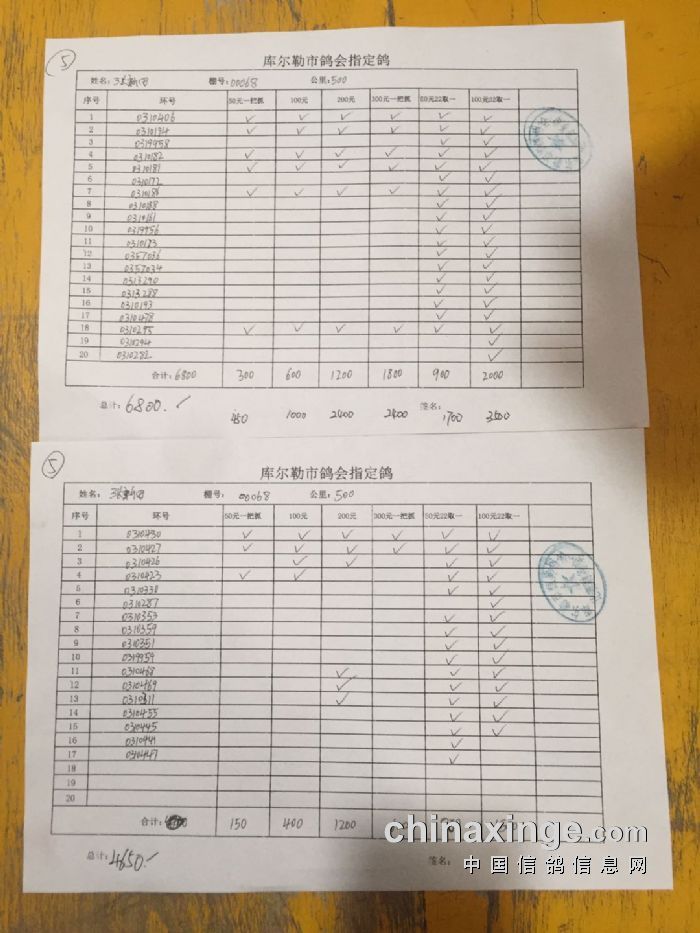 5
库尔勒市鸽会指定鸽
姓名: 棚号: 00068 公里: 500
序号 环号 50元一把抓 100元 200元 300元一把抓 50元22取一 100元22取一
1 0310406 ✓ ✓ ✓ ✓ ✓ ✓
2 0310194 ✓ ✓ ✓ ✓ ✓ ✓
3 0319958 ✓ ✓
4 0310182 ✓ ✓ ✓ ✓ ✓ ✓
5 0310181 ✓ ✓ ✓ ✓ ✓ ✓
6 0310172 ✓ ✓
7 0310186 ✓ ✓ ✓ ✓ ✓ ✓
8 0310188 ✓ ✓
9 0310161 ✓ ✓
10 0319956 ✓ ✓
11 0310183 ✓ ✓
12 0357036 ✓ ✓
13 0357034 ✓ ✓
14 0313290 ✓ ✓
15 0313288 ✓ ✓
16 0310193 ✓ ✓
17 0310438 ✓ ✓
18 0310295 ✓ ✓ ✓ ✓ ✓ ✓
19 0310294 ✓
20 0310282 ✓
合计: 6800 300 600 1200 1800 900 2000
总计: 6800. ✓ 签名:
450 1000 2400 2400 1700 3500
5
库尔勒市鸽会指定鸽
姓名: 棚号: 00068 公里: 500
序号 环号 50元一把抓 100元 200元 300元一把抓 50元22取一 100元22取一
1 0310430 ✓ ✓ ✓ ✓ ✓ ✓
2 0310427 ✓ ✓ ✓ ✓ ✓ ✓
3 0310426 ✓ ✓ ✓ ✓
4 0310423 ✓ ✓ ✓ ✓
5 0310338 ✓ ✓
6 0310287 ✓
7 0310353 ✓ ✓
8 0310359 ✓ ✓
9 0310351 ✓ ✓
10 0319959 ✓ ✓
11 0310468 ✓ ✓ ✓
12 0310469 ✓ ✓ ✓
13 0310311 ✓ ✓ ✓
14 0310455 ✓ ✓
15 0310445 ✓ ✓
16 0310441 ✓
17 0310447 ✓
18
19
20
合计: 150 400 1200
总计: 4650. 签名:
chinaxinge.com
中国信鸽信息网